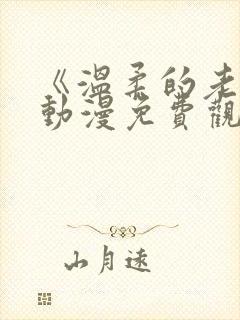 《溫柔的老
動漫免費觀
山月遠